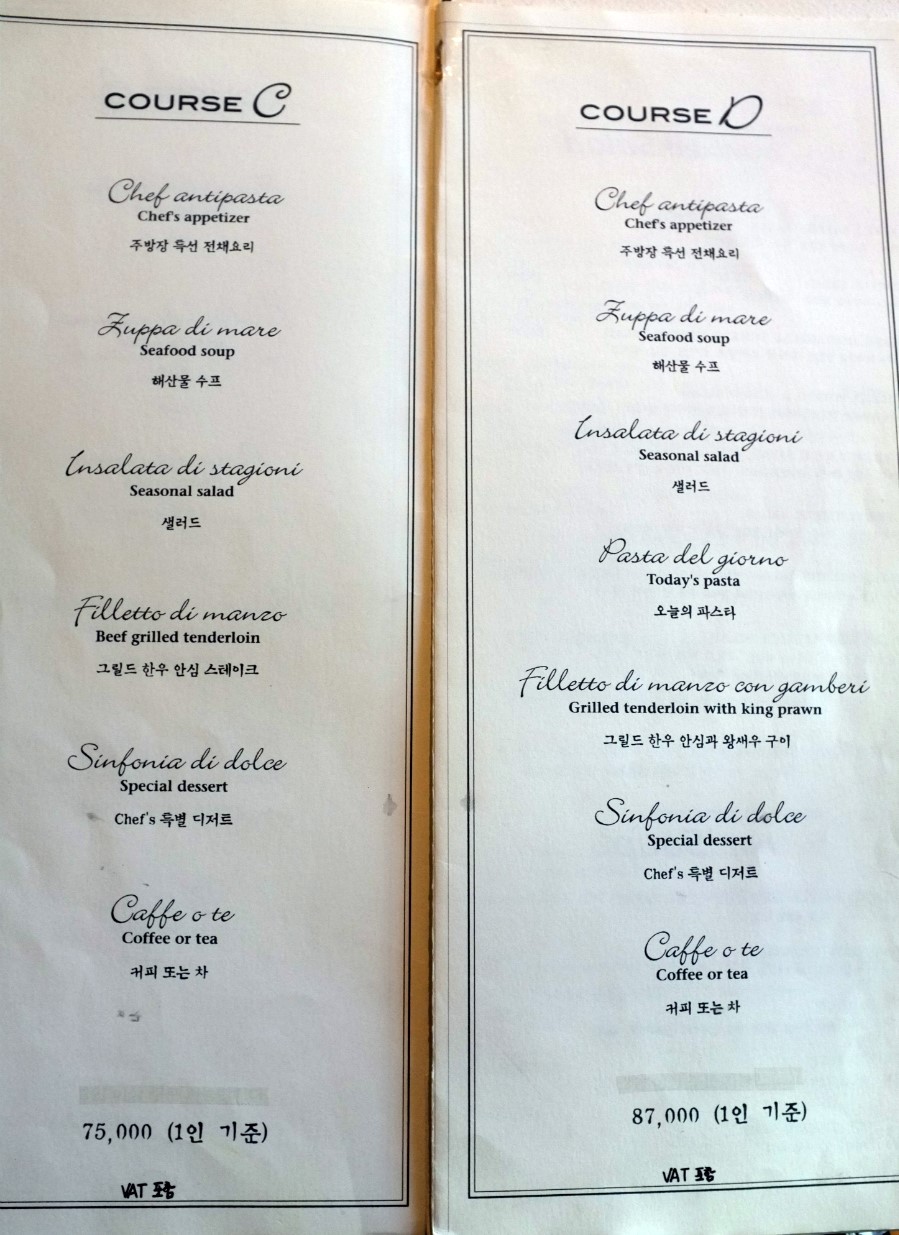 COURSE C
Chef antipasta
Chef's appetizer
주방장 특선 전채요리
Zuppa di mare
Seafood soup
해산물 수프
Insalata di stagioni
Seasonal salad
샐러드
Filletto di manzo
Beef grilled tenderloin
그릴드 한우 안심 스테이크
Sinfonia di dolce
Special dessert
Chef's 특별 디저트
Caffe o te
Coffee or tea
커피 또는 차
75,000 (1인 기준)
VAT 포함
COURSE D
Chef antipasta
Chef's appetizer
주방장 특선 전채요리
Zuppa di mare
Seafood soup
해산물 수프
Insalata di stagioni
Seasonal salad
샐러드
Pasta del giorno
Today's pasta
오늘의 파스타
Filletto di manzo con gamberi
Grilled tenderloin with king prawn
그릴드 한우 안심과 왕새우 구이
Sinfonia di dolce
Special dessert
Chef's 특별 디저트
Caffe o te
Coffee or tea
커피 또는 차
87,000 (1인 기준)
VAT 포함